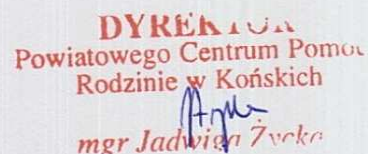 DYREKTOR
Powiatowego Centrum Pomoc
Rodzinie w Końskich
mgr Jadwiga